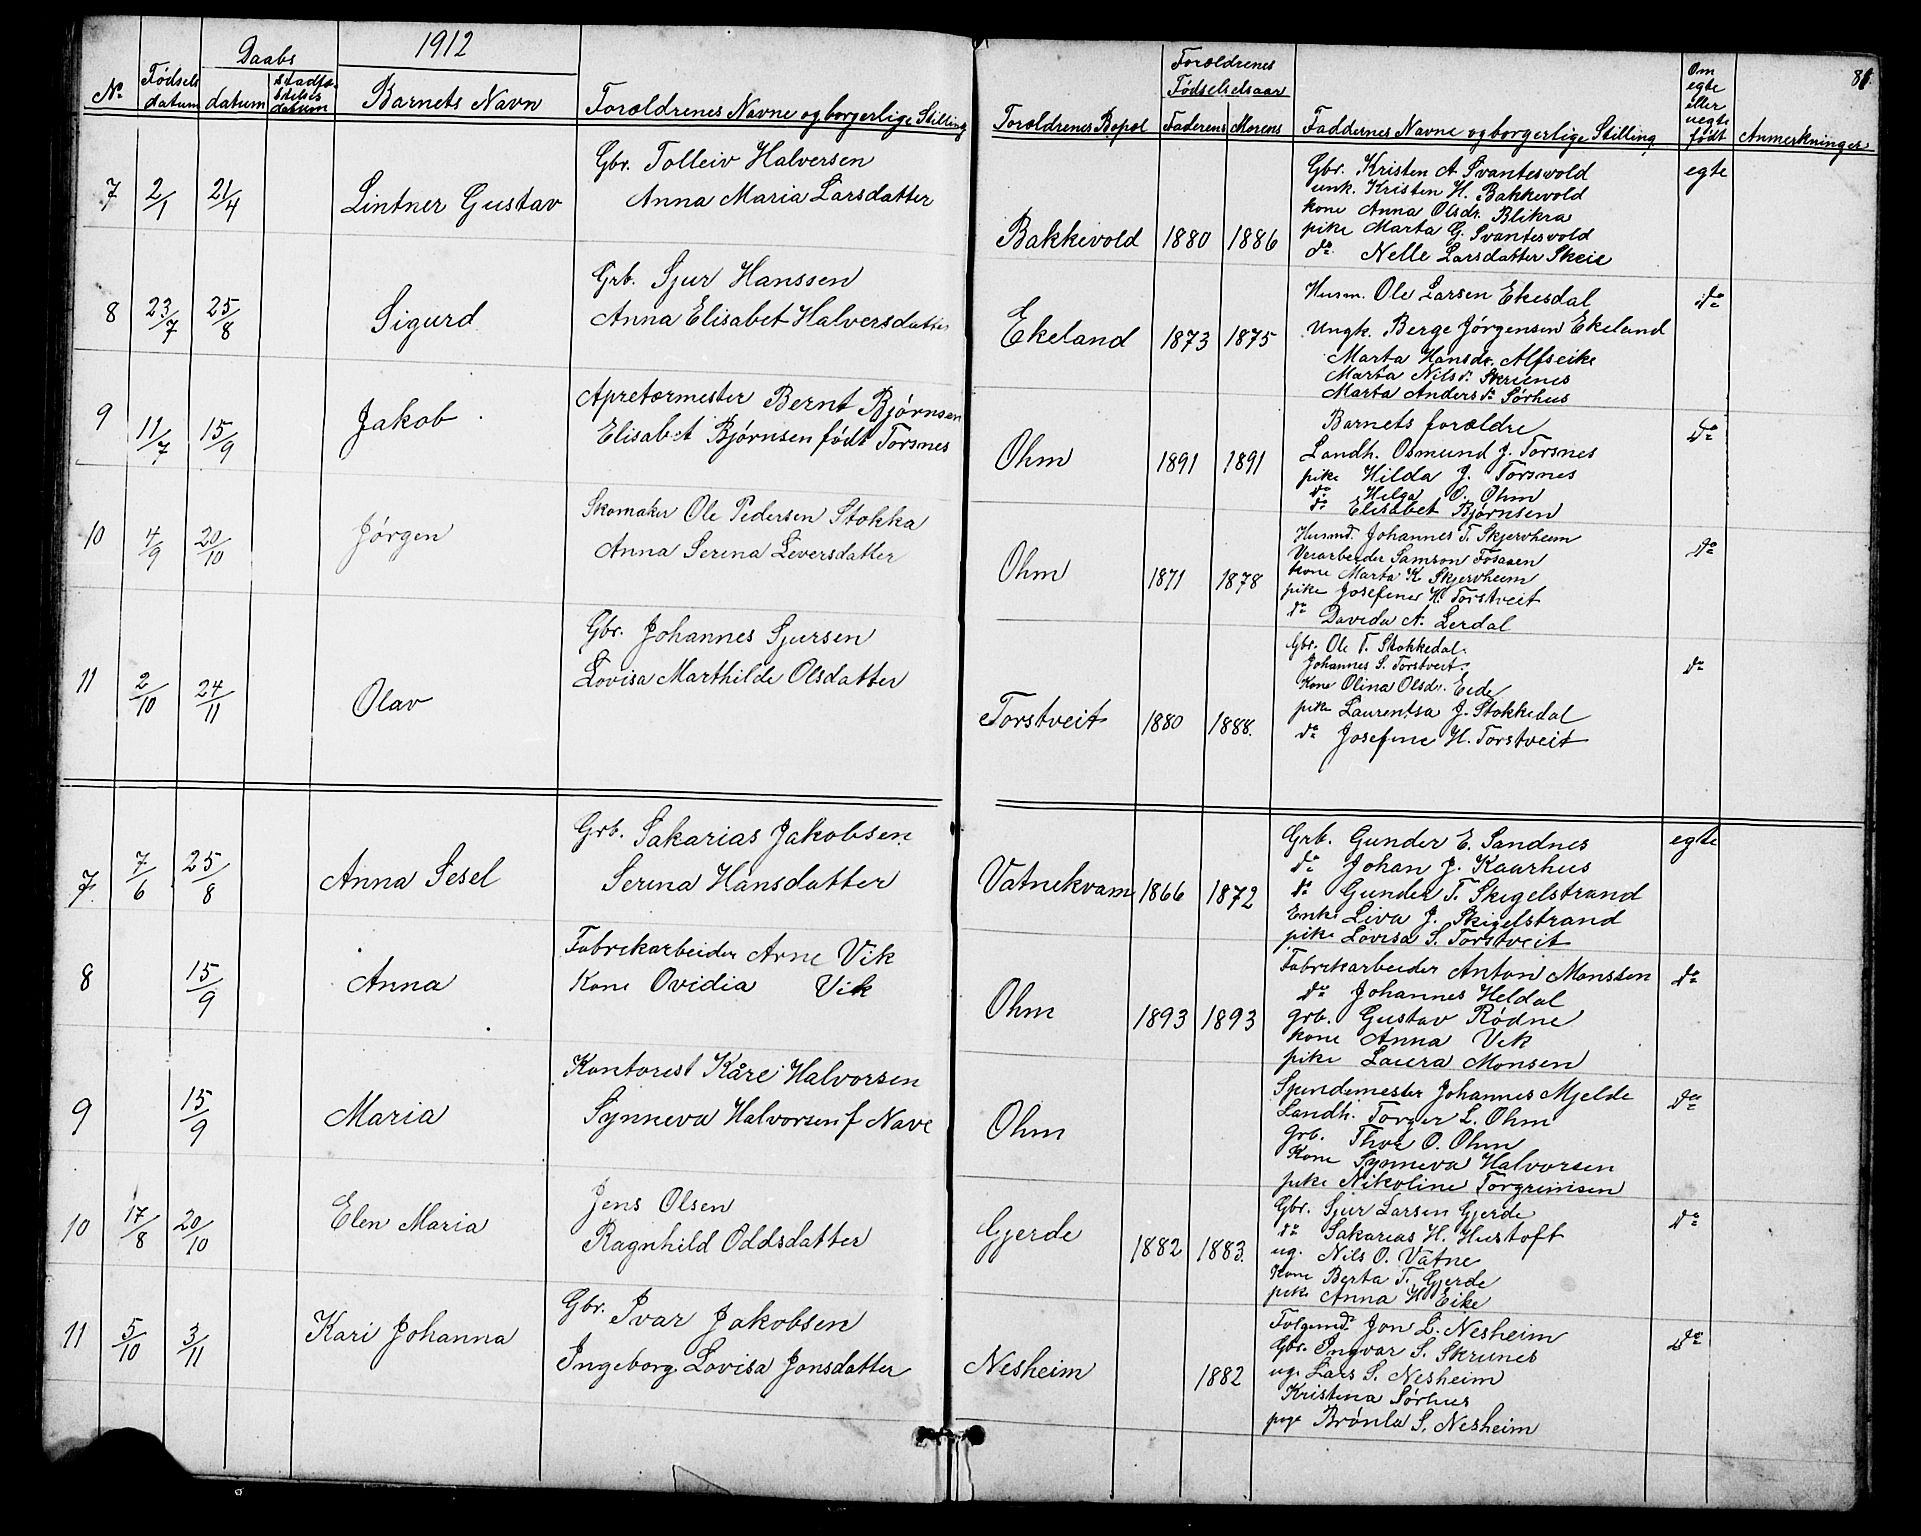 1912
Daabs
Nr.
Fødsels datum
datum
stadfæstelses datum
Barnets Navn
Forældrenes Navne og borgerlige Stilling
Forældrenes Bopæl
Forældrenes Fødselsaar
Faderens
Morens
Faddernes Navne og borgerlige Stilling
Om egte eller uegte født
Anmerkninger
7 2/1 21/4 Lintner Gustav
Gbr. Tolleiv Halversen
Anna Maria Larsdatter
Bakkevold 1880 1886
Gbr. Kristen A. Svantesvold
unk. Kristen H. Bakkevold
kone Anna Olsdr. Blikra
pike Marta G. Svantesvold
do. Nelle Larsdatter Skeie
egte
8 23/7 25/8 Sigurd
Grb. Sjur Hanssen
Anna Elisabet Halversdatter
Ekeland 1873 1875
Husm. Ole Larsen Ekesdal
Ungk. Berge Jørgensen Ekeland
Marta Hansdr. Alfseike
Marta Nilsdr. Skrunes
Marta Andersdr. Sørhus
do
9 11/7 15/9 Jakob
Apretørmester Bernt Bjørnsen
Elisabet Bjørnsen født Torsnes
Ohm 1891 1891
Barnets forældre
Landh. Osmund J. Torsnes
pike Hilda J. Torsnes
do Helga O. Ohm
do Elisabet Bjørnsen
do
10 4/9 20/10 Jørgen
Skomaker Ole Pedersen Stokka
Anna Serena Leversdatter
Ohm 1871 1878
Husmd. Johannes T. Skjervheim
Vevarbeider Samson Fosaaen
kone Marta K. Skjervheim
pike Josefine H. Torstveit
do Davida A. Lerdal
do
11 2/10 24/11 Olav
Gbr. Johannes Sjursen
Lovisa Marthilde Olsdatter
Torstveit 1880 1888.
Gbr. Ole T. Stokkedal.
Johannes S. Torstveit.
Kone Olina Olsdr. Eide
pike Laurentsa J. Stokkedal
do Josefine H. Torstveit
do
7. 7/6 25/8 Anna Sesel
Grb. Sakarias Jakobsen.
Serina Hansdatter
Vatnekvam 1866 1872
Grb. Gunder E. Sandnes
do Johan J. Kaarhus
do Gunder T. Skigelstrand
Enke Liva J. Skigelstrand
pike Lovisa S. Torstveit
egte
8 15/9 Anna
Fabrikarbeider Arne Vik
Kone Ovidia Vik
Ohm 1893 1893
Fabrikarbeider Anton Monssen
do Johannes Heldal
grb. Gustav Rødne
kone Anna Vik
pike Laura Monsen
do
9 15/9 Maria
Kontorist Kåre Halvorsen
Synneva Halvorsen f. Nave
Ohm
Spindemester Johannes Mjelde
Landh. Torger L. Ohm
grb. Thor O. Ohm
Kone Synneva Halvorsen
pike Nikoline Torgrimsen
do
10 17/8 20/10 Elen Maria
Jens Olsen
Ragnhild Oddsdatter
Gjerde 1882 1883.
Gbr. Sjur Larsen Gjerde
do Sakarias H. Hustoft
ug. Nils O. Vatne
Kone Berta T. Gjerde
pike Anna H. Eike
do
11 5/10 3/11 Kari Johanna
Gbr. Ivar Jakobsen
Ingeborg Lovisa Jonsdatter
Nesheim 1882
Folgemd. Jon L. Nesheim
Gbr. Ingvar S. Skrunes
ug. Lars S. Nesheim
Kristina Sørhus
pige Brønla S. Nesheim
do